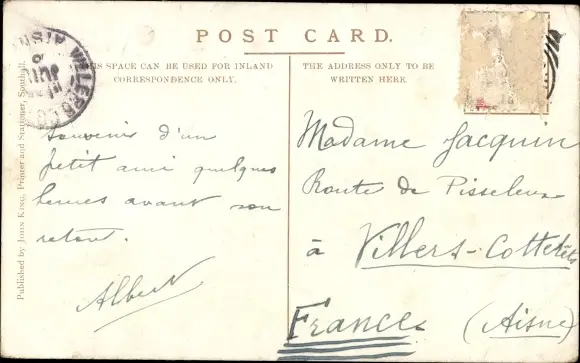 POST CARD.
THIS SPACE CAN BE USED FOR INLAND
CORRESPONDENCE ONLY.
THE ADDRESS ONLY TO BE
WRITTEN HERE.
VILLERS-CO
AISN
Published by JOHN KING, Printer and Stationer, Southall.
Souvenir d'un
petit ami quelques
heures avant son
retour.
Albert
Madame Jacquin
Route de Pisseleux
à Villers-Cotterêts
France (Aisne)